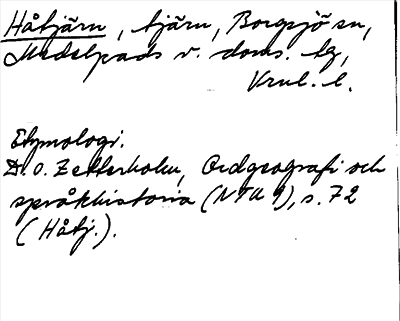 Håtjärn, tjärn, Borgsjö sn,
Medelpads v. doms. tg,
Vnl. l.
Etymologi.
D. O. Zetterholm, Ordgeografi och
språkhistoria (NTU 9), s. 72
(Håtj.).